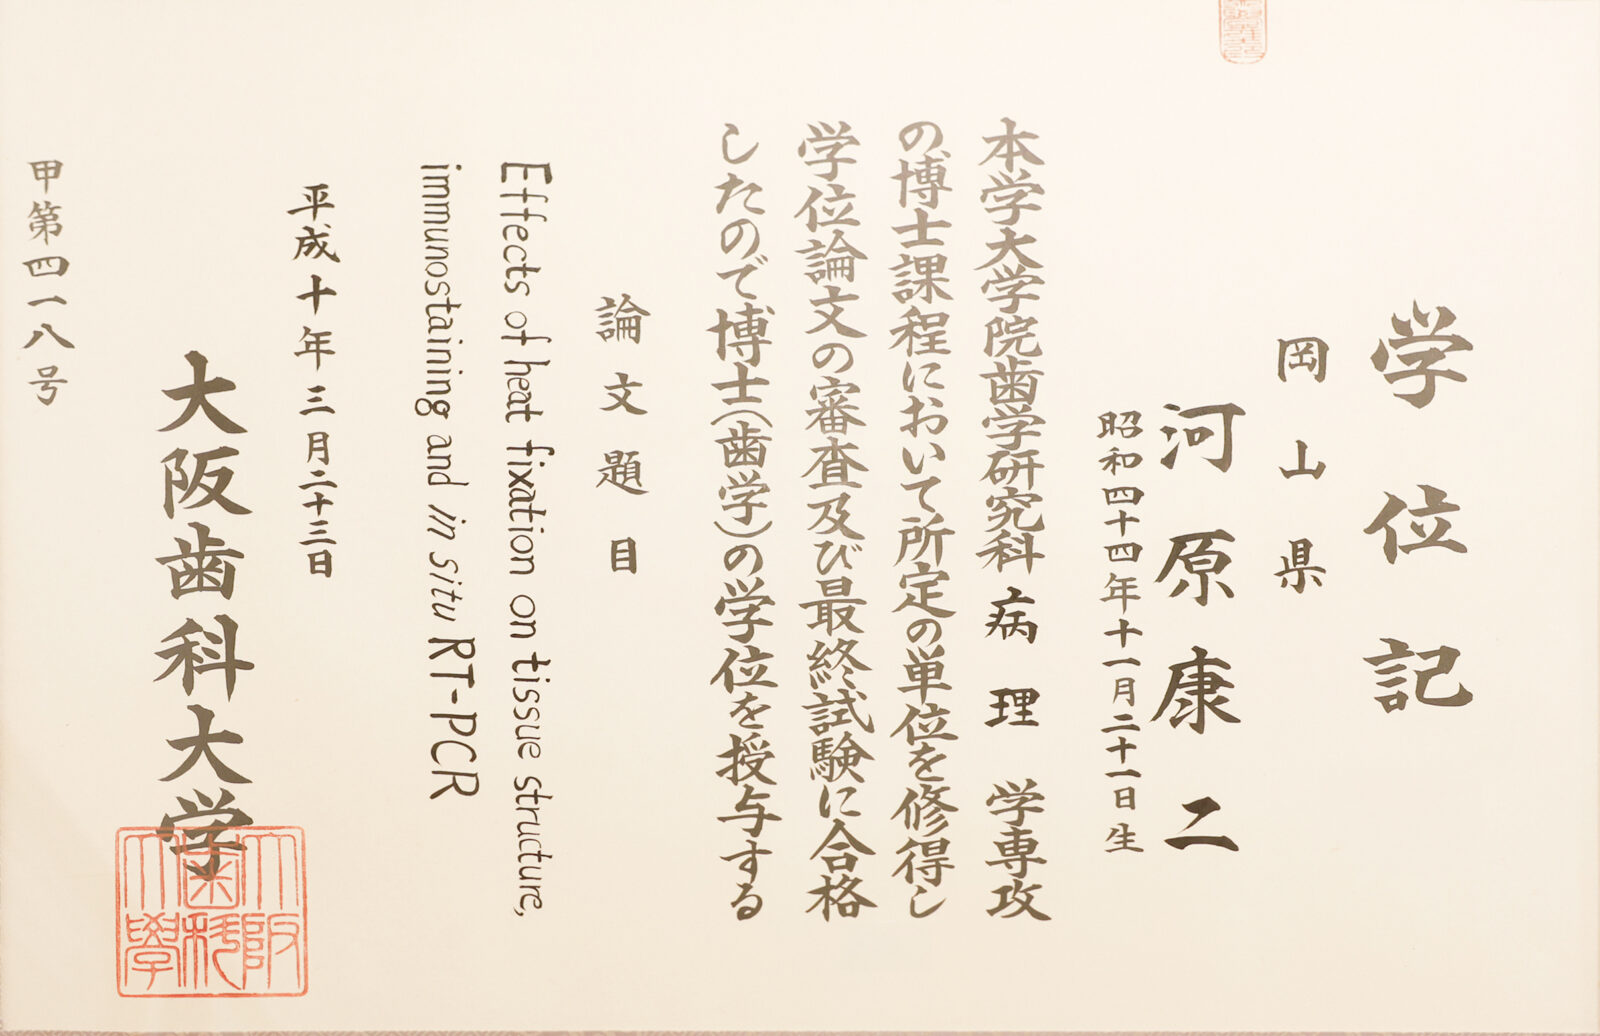 学位記
岡山県
河原康二
昭和四十四年十一月二十一日生
本学大学院歯学研究科病理学専攻
の博士課程において所定の単位を修得し
学位論文の審査及び最終試験に合格
したので博士(歯学)の学位を授与する
論文題目
Effects of heat fixation on tissue structure,
immunostaining and in situ RT-PCR
平成十年三月二十三日
大阪歯科大学
甲第四一八号